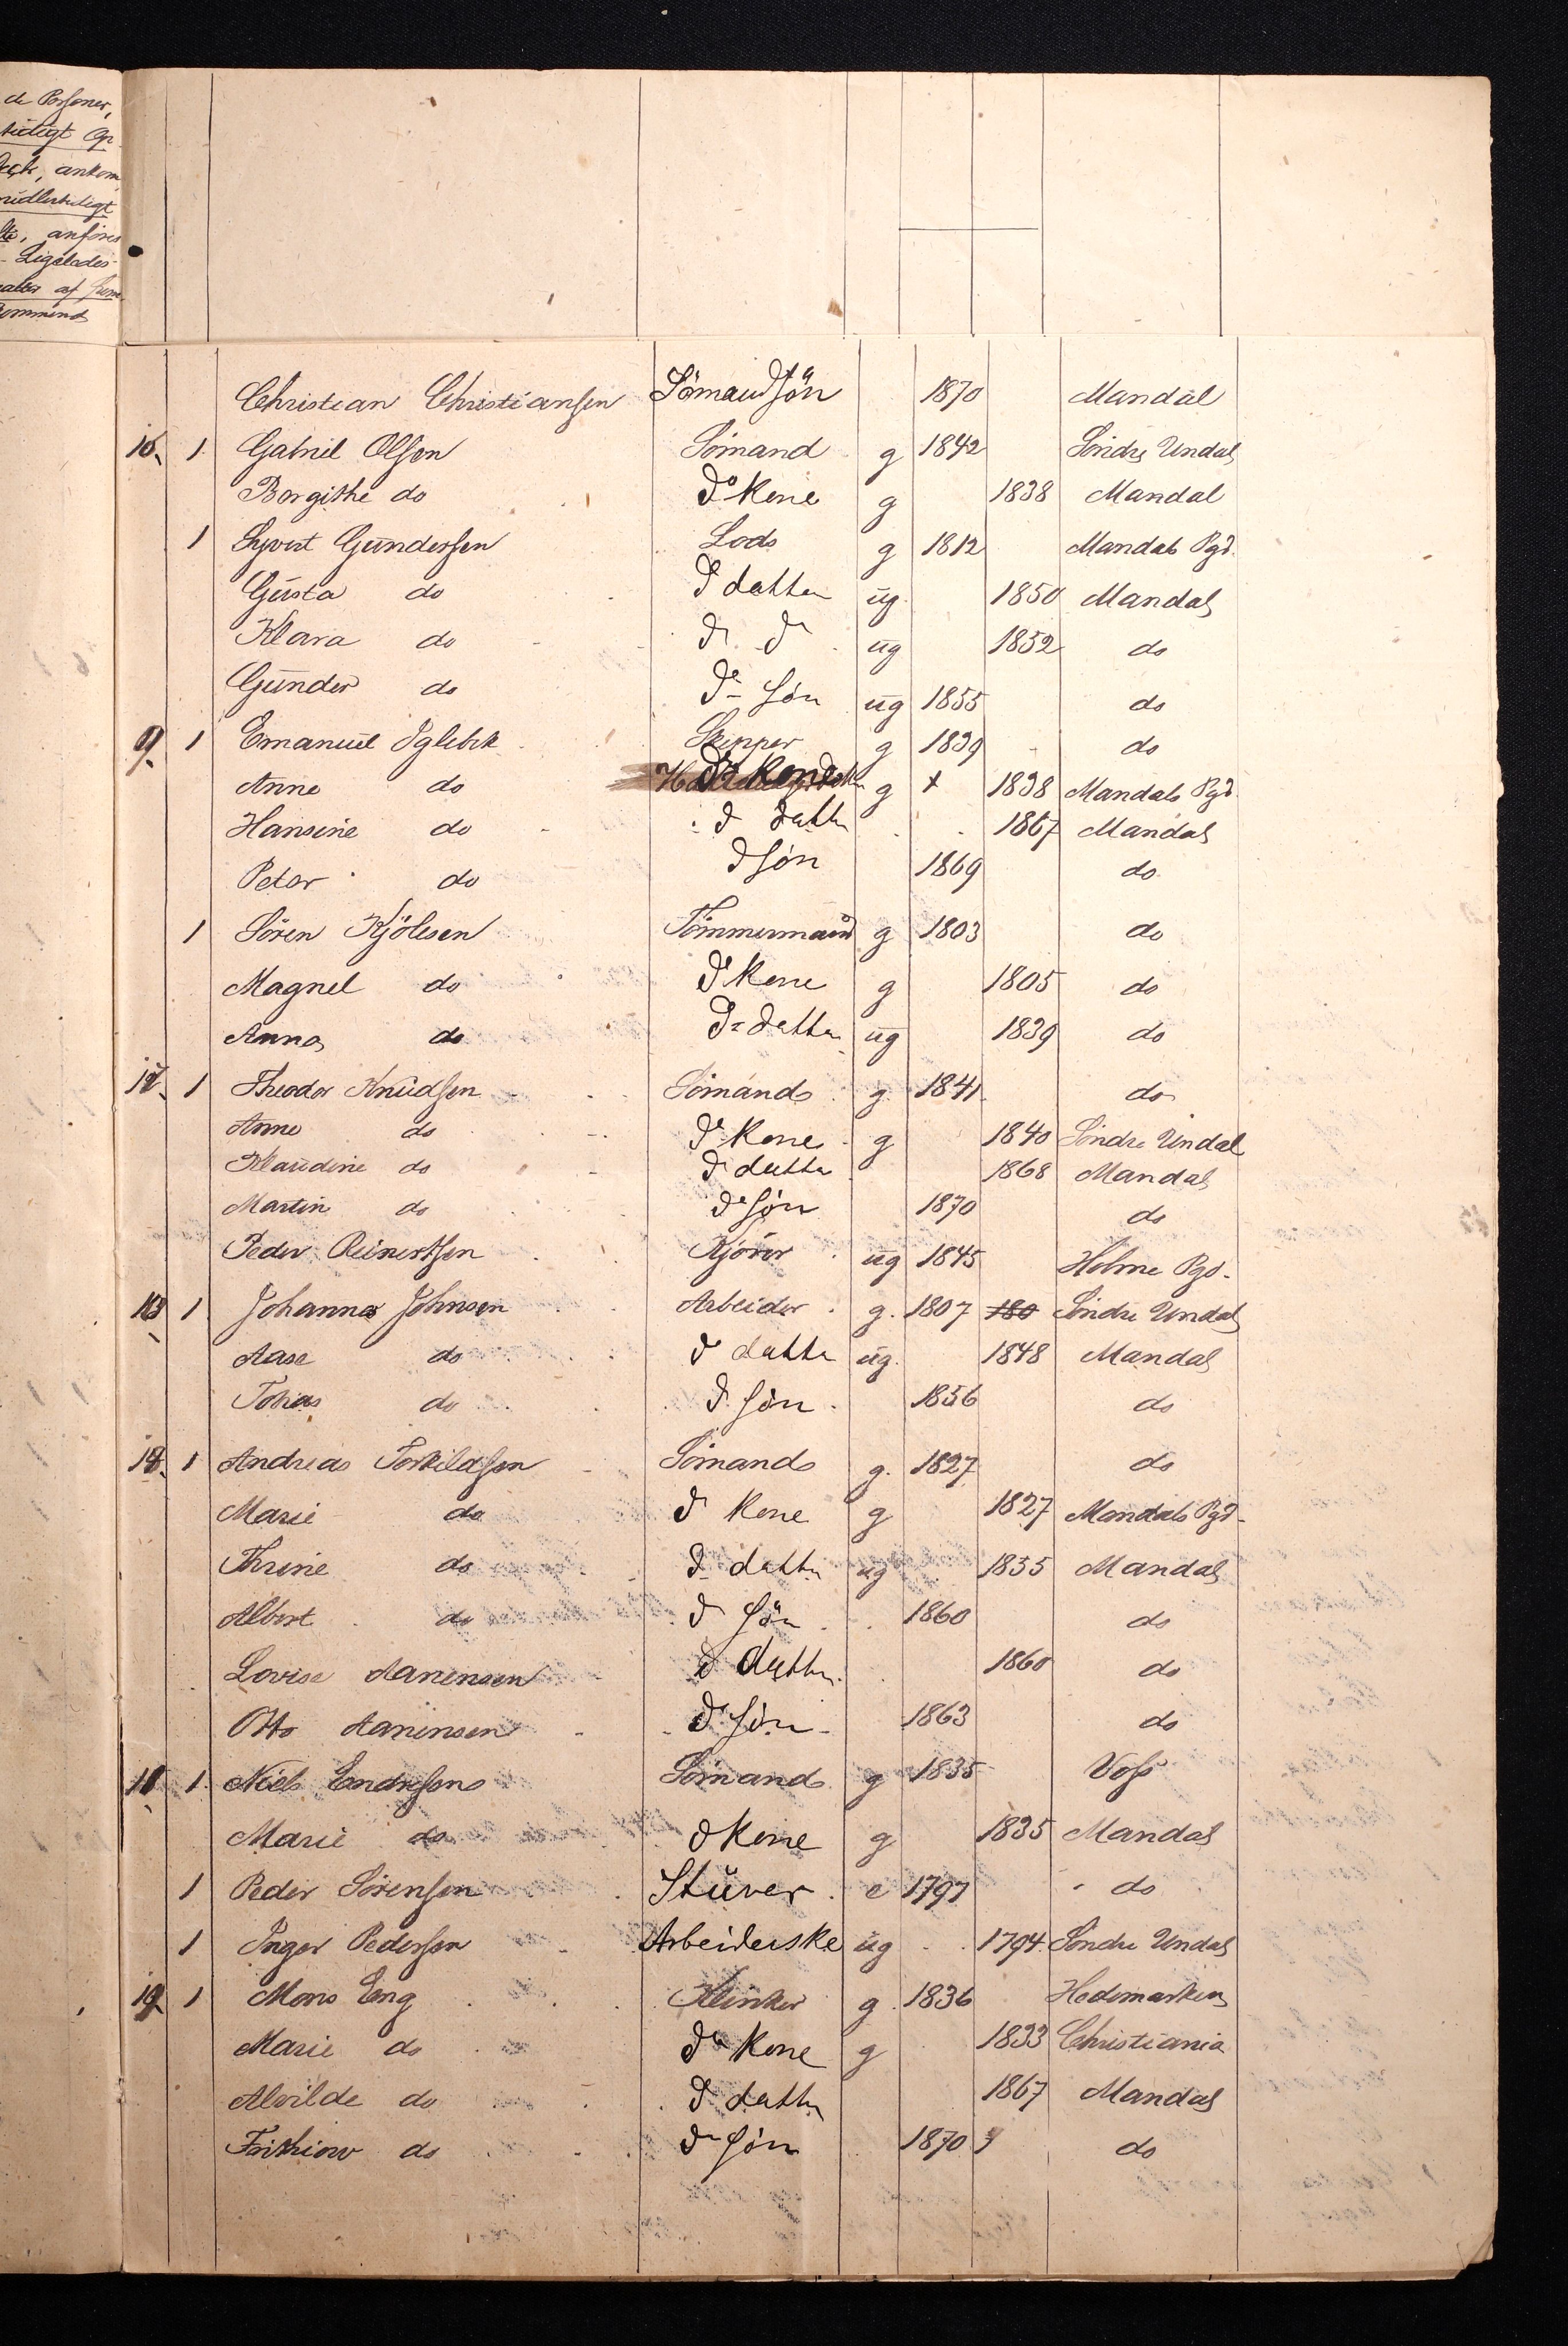 de Personer,
ankom
anföres
Ligeledes
Christian Christiansen Sömand Sön 1870 Mandal
1 Gabriel Olsen Sömand g 1842 Söndre Undal
Borgithe do do Kone g 1838 Mandal
1 Syvert Gundersen Lods g 1812 Mandals Pgd.
Gusta do do datter ug 1850 Mandal
Klara do do do ug 1852 do
Gunder do do Sön ug 1855 do
9. 1 Emanuel Iglebek Skipper g 1839 do
Anne do do Kone g x 1838 Mandals Pgd.
Hansine do do datter 1867 Mandal
Peter do do Sön 1869 do
1 Sören Kjölesen Tömmermand g 1803 do
Magnel do do Kone g 1805 do
Anna do do datter ug 1839 do
1 Theodor Knudsen Sömand g 1841 do
Anne do do Kone g 1840 Söndre Undal
Klaudine do do datter 1868 Mandal
Martin do do Sön 1870 do
Peder Reinertsen ug 1845 Holme Pgd.
1 Johannes Johnsen Arbeider g. 1807 180 Söndre Undal
Aase do do datter ug. 1848 Mandal
Tobias do do Sön 1856 do
1 Andreas Torkildsen Sömand g. 1827 do
Marie do do Kone g 1827 Mandals Pgd.
Thrine do do datter ug 1855 Mandal
Albert do do Sön 1860 do
Lovise Aanensen do datter 1860 do
Otto Aanensen do Sön 1863 do
1 Niels Endresen Sömand g 1835 Voss
Marie do do Kone g 1835 Mandal
1 Peder Sörensen Stuver e 1797 do
1 Inger Pedersen Arbeiderske ug 1794 Söndre Undal
19. 1 Mons Eng Klinker g. 1836 Hedemarken
Marie do do Kone g 1833 Christiania
Alvilde do do datter 1867 Mandal
Frithiow do do Sön 1870 do